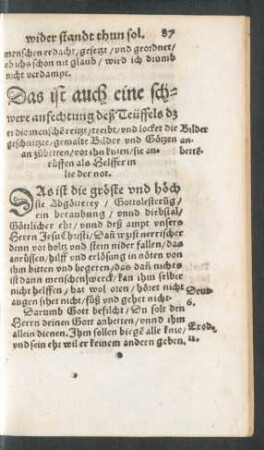 wider standt thun sol. 87
menschen erdacht/gesetzt/vnd geordnet/
ob ichs schon nit glaub/wird ich drumb
nicht verdampt.
Das ist auch eine sch-
were anfechtung deß Teüffels dz
er die mensche reitzt/treibt/vnd locket die Bilder
geschnitzte/gemalte Bilder vnd Götzen an-
an zübetten/vor ihn knien/sie an bettē-
rüffen als Helffer in
lie der not.
DAs ist die gröste vnd höch
ste Abgötterey/Gottolesterūg/
ein beraubung/vnnd diebstal/
Götlicher eht/vnnd deß ampt vnsers
Herrn Jesu Christi/Dañ wz ist nerrischer
denn vor holtz vnd stein nider fallen/das
anrüssen/hilff vnd erlösung in nöten von
ihm bitten vnd begeren/das dañ nichts
ist dann menschen werck/kan ihm selber
nicht helffen/hat wol oren/höret nicht
augen sihet nicht/füß vnd gehet nicht. Deut.
Darumb Gott befilcht/Du solt den 6.
Herrn deinen Gott anbetten/vnnd ihm
allein dienen. Ihm sollen biegē alle knie/ Exod.
vnd sein ehr wil er keinem andern geben. 14.